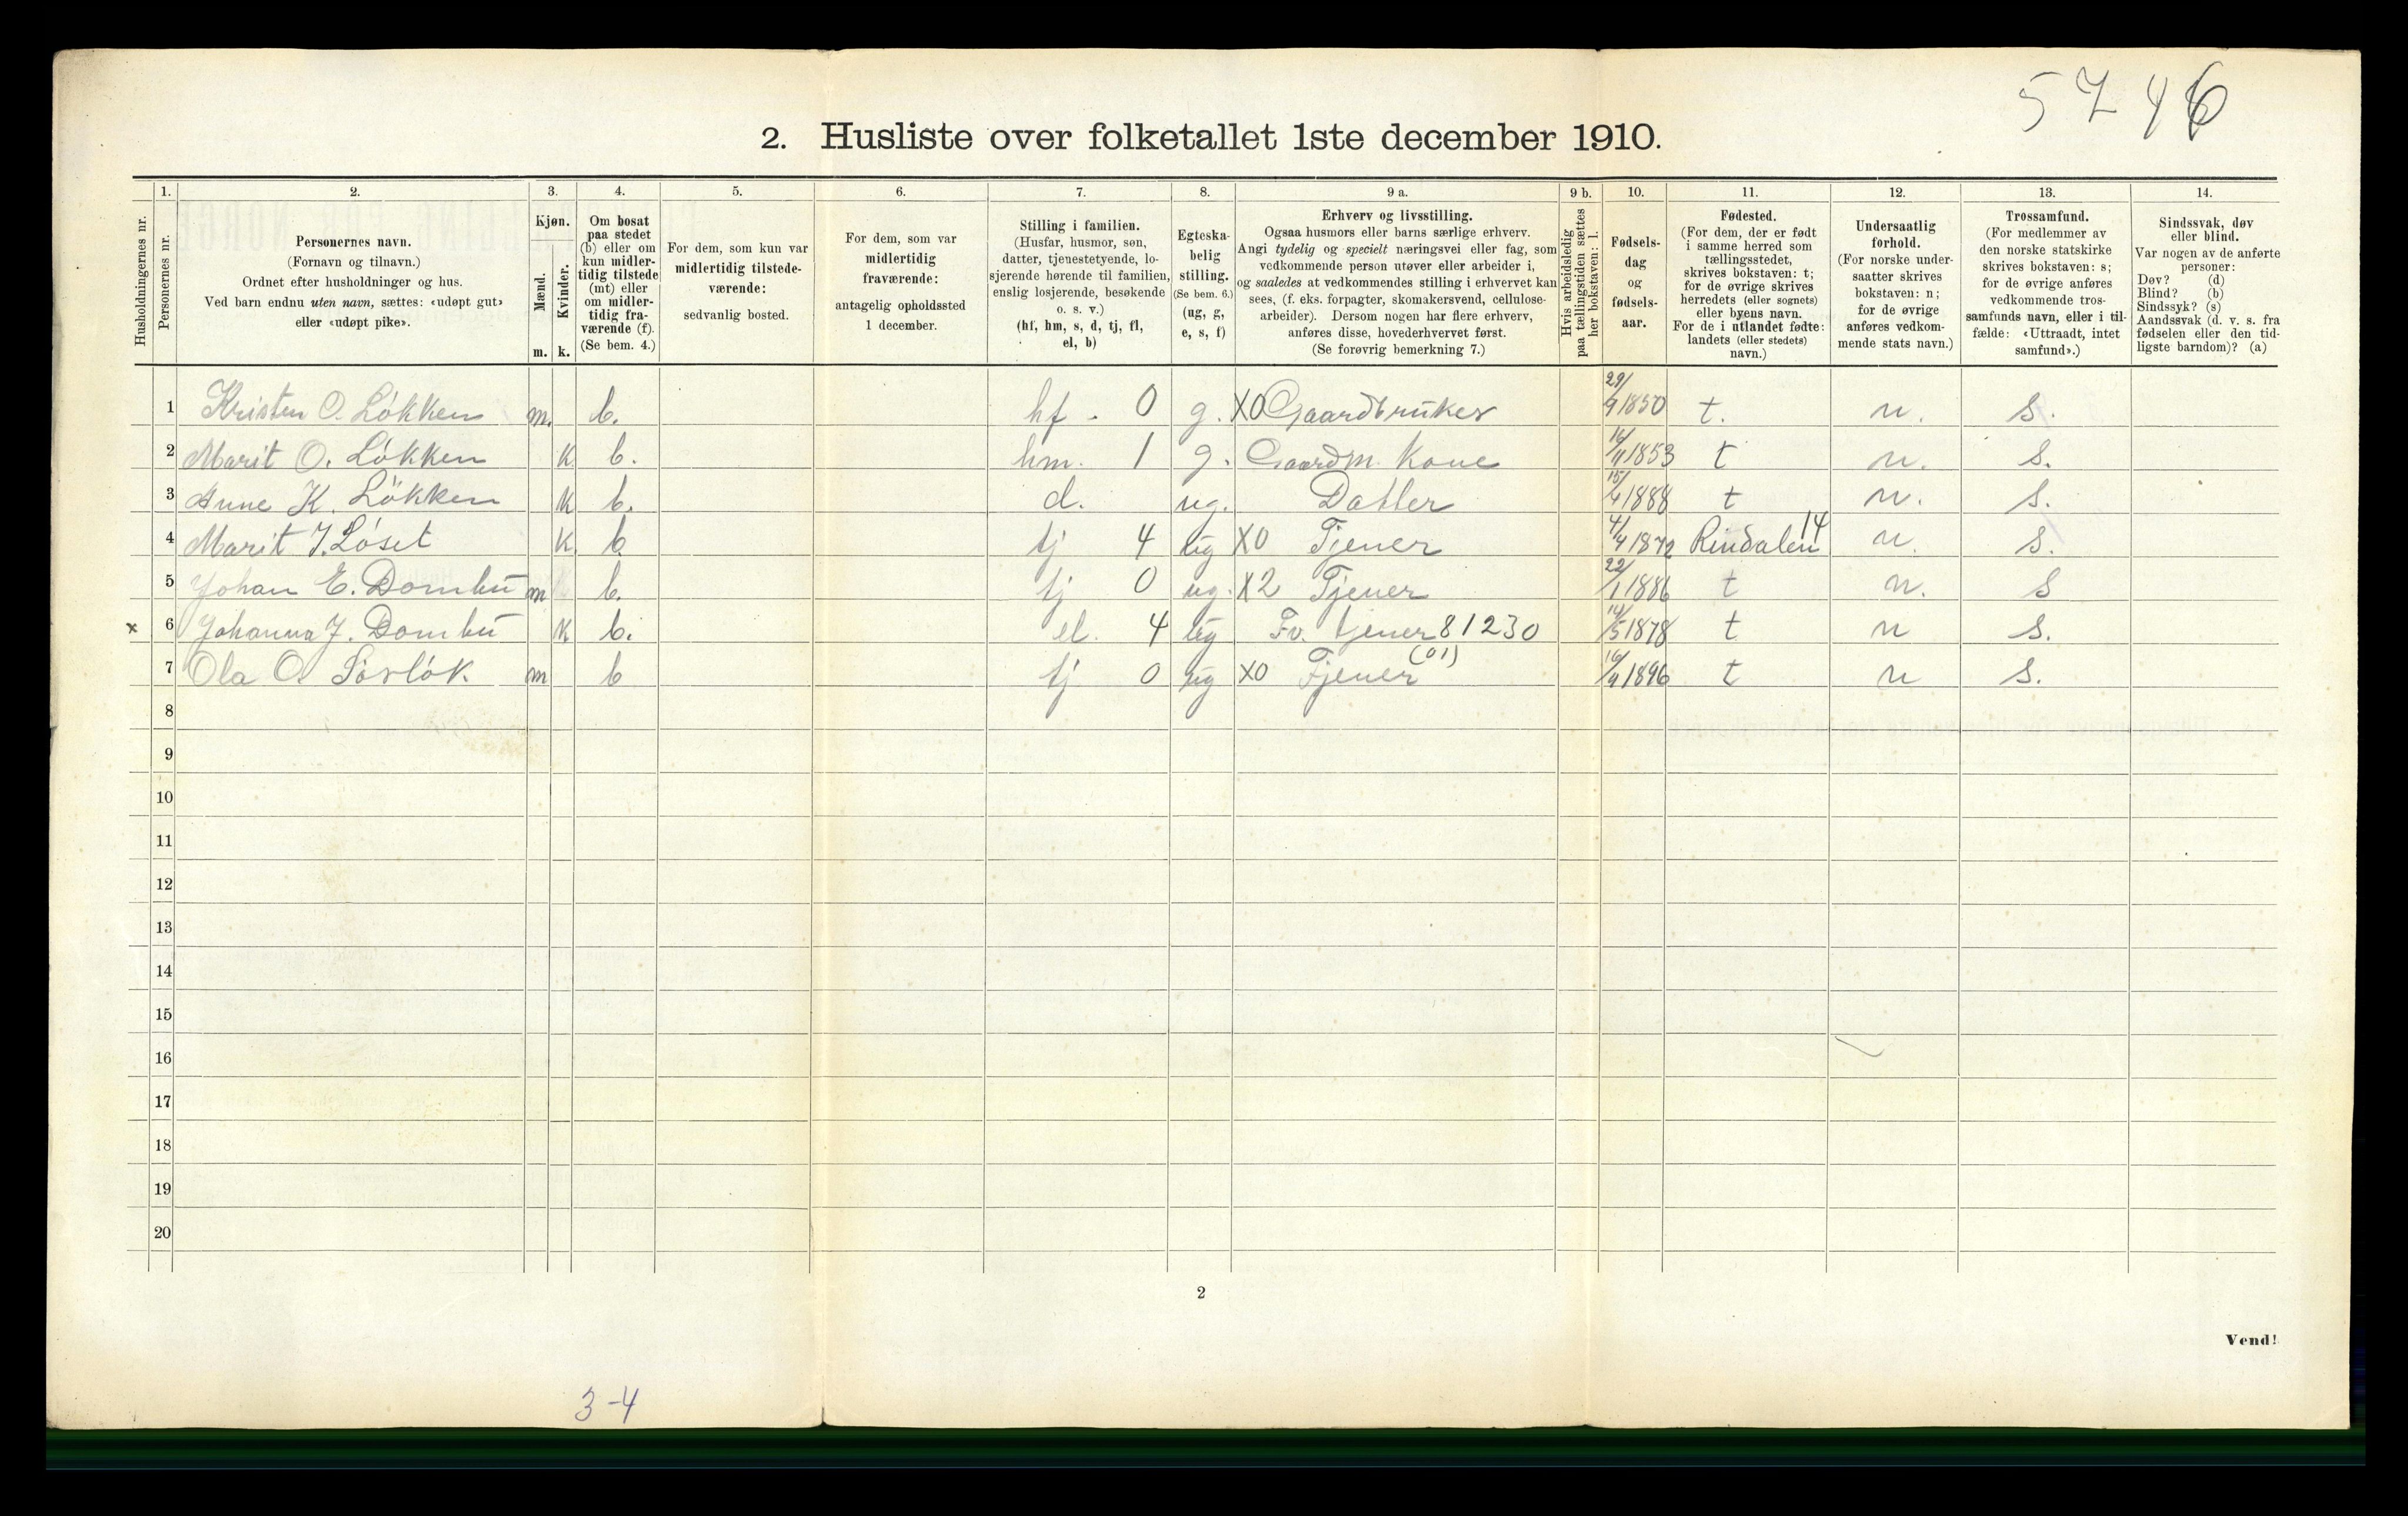 5746
2. Husliste over folketallet 1ste december 1910.
Husholdningernes nr.
1. Personernes nr.
2. Personernes navn. (Fornavn og tilnavn.) Ordnet efter husholdninger og hus. Ved barn endnu uten navn, sættes: «udøpt gut» eller «udøpt pike».
3. Kjøn. Mænd. m. Kvinder. k.
4. Om bosat paa stedet (b) eller om kun midlertidig tilstede (mt) eller om midlertidig fraværende (f). (Se bem. 4.)
5. For dem, som kun var midlertidig tilstedeværende: sedvanlig bosted.
6. For dem, som var midlertidig fraværende: antagelig opholdssted 1 december.
7. Stilling i familien. (Husfar, husmor, søn, datter, tjenestetyende, losjerende hørende til familien, enslig losjerende, besøkende o. s. v.) (hf, hm, s, d, tj, fl, el, b)
8. Egteskabelig stilling. (Se bem. 6.) (ug, g, e, s, f)
9 a. Erhverv og livsstilling. Ogsaa husmors eller barns særlige erhverv. Angi tydelig og specielt næringsvei eller fag, som vedkommende person utøver eller arbeider i, og saaledes at vedkommendes stilling i erhvervet kan sees, (f. eks. forpagter, skomakersvend, cellulosearbeider). Dersom nogen har flere erhverv, anføres disse, hovederhvervet først. (Se forøvrig bemerkning 7.)
9 b. Hvis arbeidsledig paa tællingstiden sættes her bokstaven: l.
10. Fødselsdag og fødselsaar.
11. Fødested. (For dem, der er født i samme herred som tællingsstedet, skrives bokstaven: t; for de øvrige skrives herredets (eller sognets) eller byens navn. For de i utlandet fødte: landets (eller stedets) navn.)
12. Undersaatlig forhold. (For norske undersaatter skrives bokstaven: n; for de øvrige anføres vedkommende stats navn.)
13. Trossamfund. (For medlemmer av den norske statskirke skrives bokstaven: s; for de øvrige anføres vedkommende trossamfunds navn, eller i tilfælde: «Uttraadt, intet samfund».)
14. Sindssvak, døv eller blind. Var nogen av de anførte personer: Døv? (d) Blind? (b) Sindssyk? (s) Aandssvak (d. v. s. fra fødselen eller den tidligste barndom)? (a)
1 Kristen O. Løkken m. b. hf. 0 g. X0 Gaardbruker 29/9 1850 t. n. s.
2 Marit O. Løkken k b. hm. 1 g. Gaardm. Kone 16/11 1853 t n. s.
3 Anne K. Løkken k b. d. ug. Datter 15/4 1888 t n. s.
4 Marit J. Løset k. b tj 4 ug X0 Tjener 4/4 1872 Rindalen 14 n. s.
5 Johan E. Dombu m b. tj 0 ug. X2 Tjener 22/1 1886 t n. s
x 6 Johanna J. Dombu k b. el. 4 ug Fv. tjener 81230 14/5 1878 t n s.
7 Ola O. Sørløk. m b tj 0 ug X0 Tjener (01) 16/4 1896 t n s.
8
9
10
11
12
13
14
15
16
17
18
19
20
2
Vend!
3-4